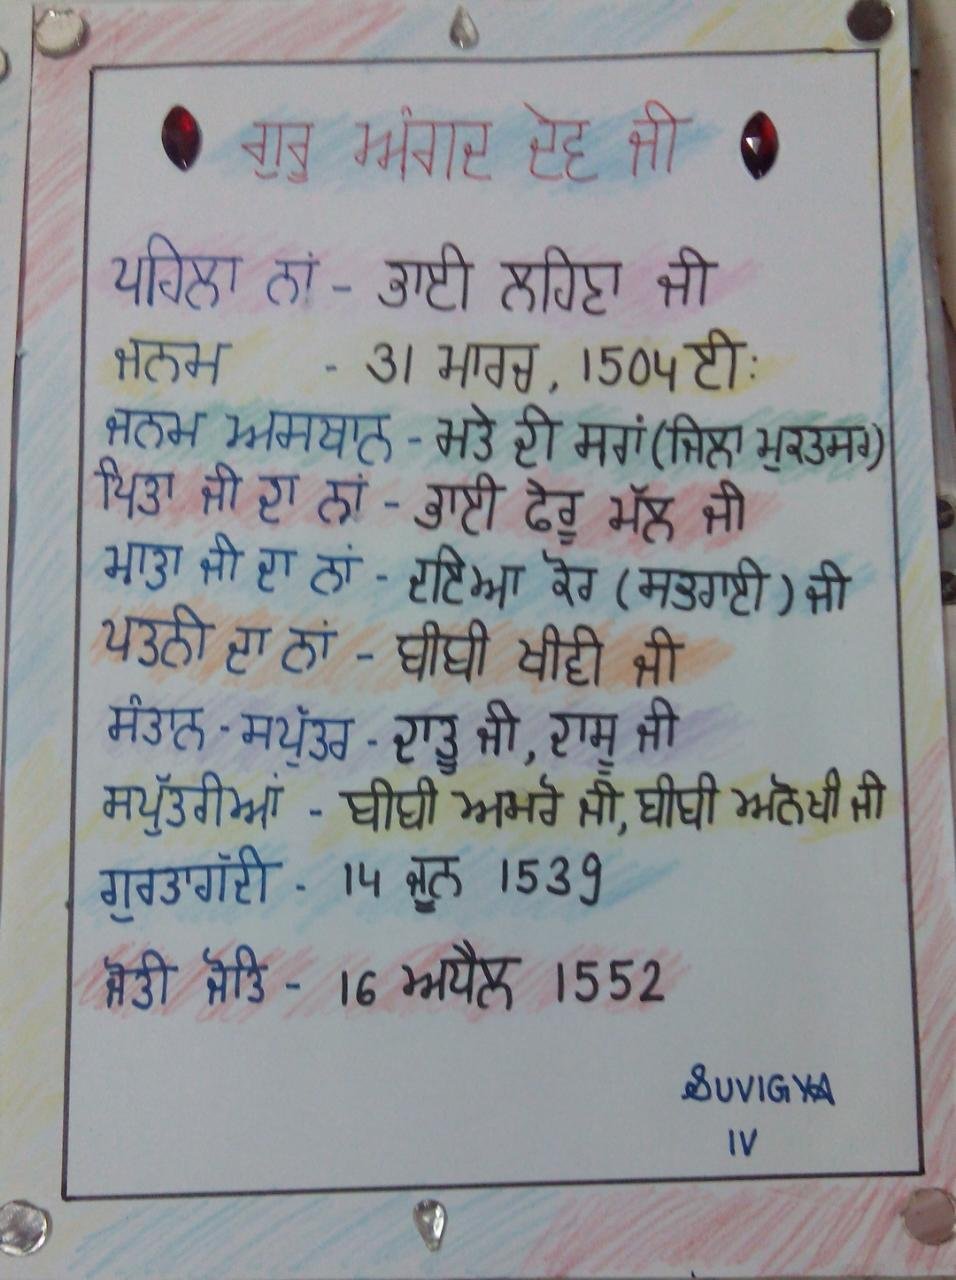 ਗੁਰੁ ਅੰਗਦ ਦੇਵ ਜੀ
ਪਹਿਲਾ ਨਾਂ - ਭਾਈ ਲਹਿਣਾ ਜੀ
ਜਨਮ - 31 ਮਾਰਚ, 1504 ਈ:
ਜਨਮ ਅਸਥਾਨ - ਮਤੇ ਦੀ ਸਰਾਂ (ਜਿਲਾ ਮੁਕਤਸਰ)
ਪਿਤਾ ਜੀ ਦਾ ਨਾਂ - ਭਾਈ ਫੇਰੂ ਮੱਲ ਜੀ
ਮਾਤਾ ਜੀ ਦਾ ਨਾਂ - ਦਇਆ ਕੌਰ (ਸਭਰਾਈ) ਜੀ
ਪਤਨੀ ਦਾ ਨਾਂ - ਬੀਬੀ ਖੀਵੀ ਜੀ
ਸੰਤਾਨ - ਸਪੁੱਤਰ - ਦਾਤੂ ਜੀ, ਦਾਸੂ ਜੀ
ਸਪੁੱਤਰੀਆਂ - ਬੀਬੀ ਅਮਰੋ ਜੀ, ਬੀਬੀ ਅਨੋਖੀ ਜੀ
ਗੁਰਤਾਗੱਦੀ - 14 ਜੂਨ 1539
ਜੋਤੀ ਜੋਤਿ - 16 ਅਪੈਲ 1552
SUVIGYA
IV